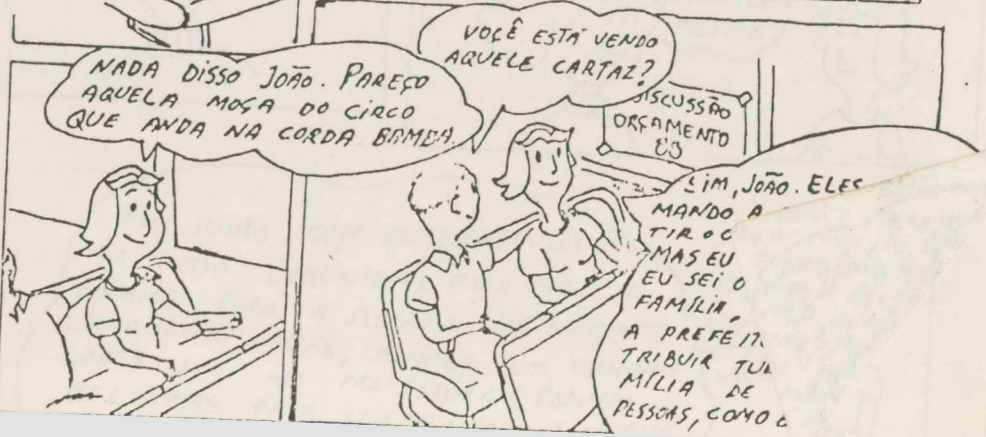 NADA DISSO JOÃO. PAREÇO
AQUELA MOÇA DO CIRCO
QUE ANDA NA CORDA BAMBA.
VOCÊ ESTÁ VENDO
AQUELE CARTAZ?
DISCUSSÃO
ORÇAMENTO
88
SIM, JOÃO. ELES
MANDO A
TIR O C
MAS EU
EU SEI O
FAMÍLIA,
A PREFEIT
TRIBUIR
MÍLIA DE
PESSOAS, COMO